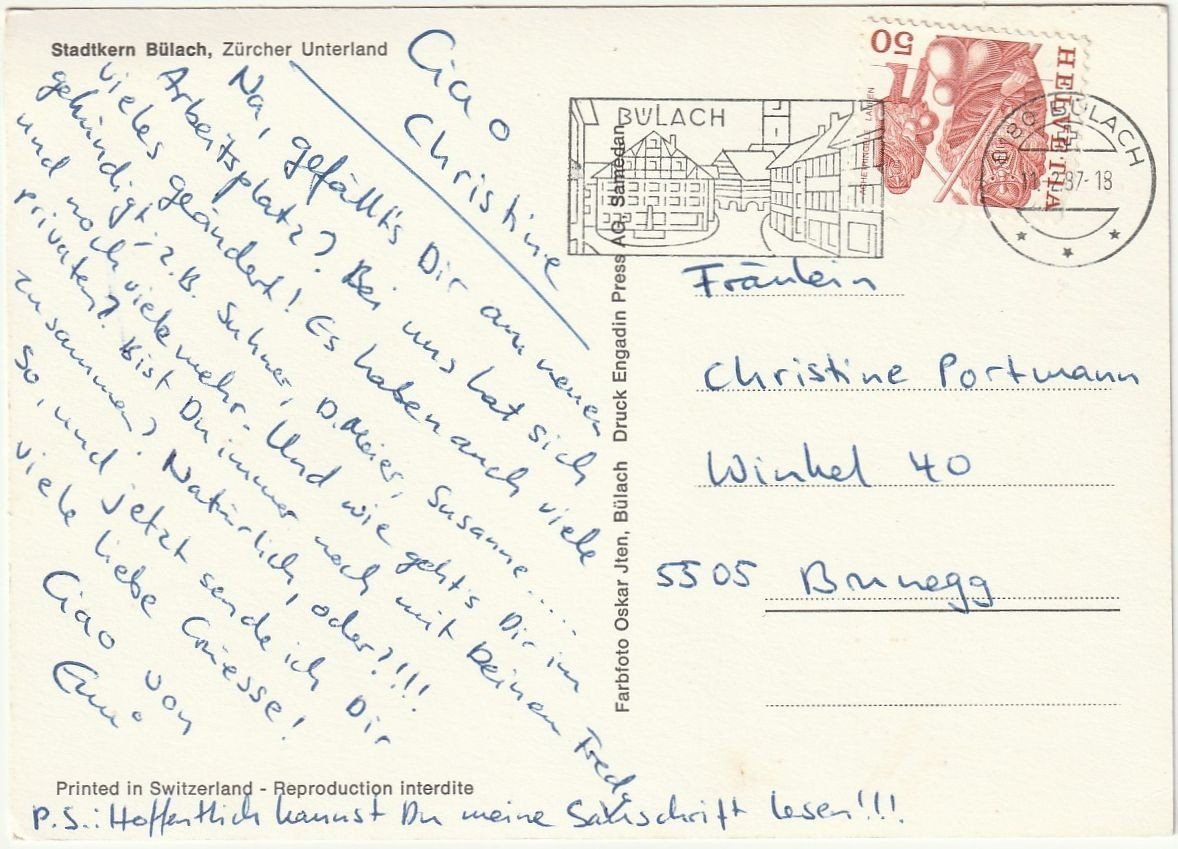 Stadtkern Bülach, Zürcher Unterland
Ciao
Christine
Na, gefällt's Dir am neuen
Arbeitsplatz? Bei uns hat sich
vieles geändert! Es haben auch viele
gekündigt - z.B. Suhner, D. Meier, Susanne....
und noch viele mehr. Und wie geht's Dir im
privaten? Bist Du immer noch mit Deinem Fredy
zusammen? Natürlich, oder?!!!
So, und jetzt sende ich Dir
viele liebe Grüesse!
Ciao von
Printed in Switzerland - Reproduction interdite
P.S.: Hoffentlich kannst Du meine Sauschrift lesen!!!
Farbfoto Oskar Jten, Bülach Druck Engadin Press AG, Samedan
BÜLACH
HELVETIA
50
BÜLACH
87-18
Fräulein
Christine Portmann
Winkel 40
5505 Brunegg